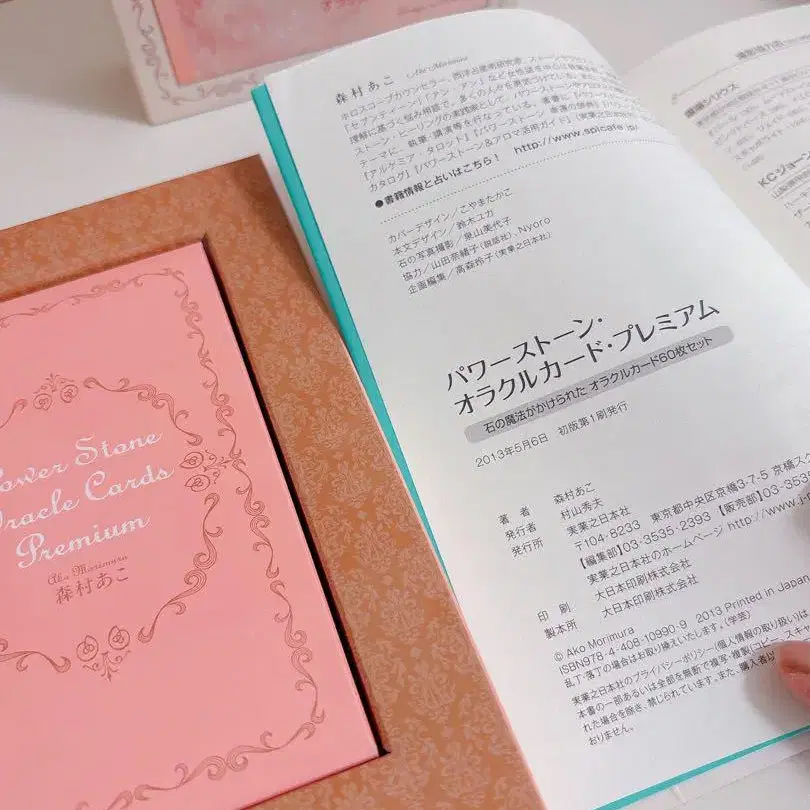 Power Stone
Oracle Cards
Premium
Ako Morimura
森村あこ
森村あこ Ako Morimura
ホロスコープカウンセラー、西洋占星術研究家、ストーン
『セブンティーン』『アン・アン』など女性誌を中心に
理解に基づく悩み相談で、多くの人々を勇気づけている。また
ストーン・ヒーリングの実践家として、パワーストーンやアロマ
テーマに、執筆・講演等を行なっている。著書に『パワーストーン 幸運の辞典』
『アルケミア・タロット』『パワーストーン&アロマ活用ガイド』(実業之日本社)
カタログ』
●書籍情報と占いはこちら! http://www.spicafe.jp/
カバーデザイン/こやまたかこ
本文デザイン/鈴木ユカ
石の写真撮影/泉山美代子
協力/山田奈緒子(説話社)、Nyoro
企画編集/高森玲子(実業之日本社)
パワーストーン・
オラクルカード・プレミアム
石の魔法がかけられた オラクルカード60枚セット
2013年5月6日 初版第1刷発行
著者 森村あこ
発行者 村山秀夫
発行所 実業之日本社
〒104-8233 東京都中央区京橋3-7-5 京橋スク
【編集部】03-3535-2393【販売部】03-3535
実業之日本社のホームページ http://www.j
印刷 大日本印刷株式会社
製本所 大日本印刷株式会社
© Ako Morimura
ISBN978-4-408-10990-9 2013 Printed in Japan
乱丁・落丁の場合はお取り換えいたします。(学芸)
実業之日本社のプライバシーポリシー(個人情報の取り扱い)は
本書の一部あるいは全部を無断で複写・複製(コピー、スキャ
れた場合を除き、禁じられています。また、購入者以
おりません。
撮影協力店
KCジョーン